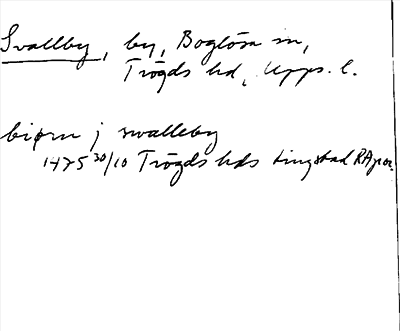 Svallby, by, Boglösa sn,
Trögds hd, Upps. l.
biørn j swalleby
1475 30/10 Trögds hds tingstad RA